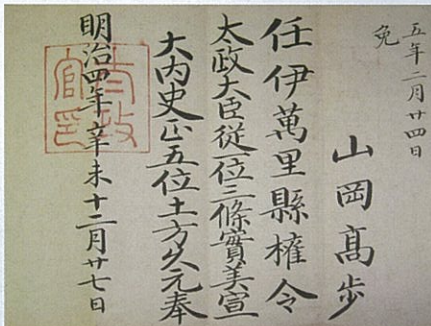 五年二月廿四日
免
山岡髙歩
任伊萬里縣權令
太政大臣從一位三條實美宣
大内史正五位土方久元奉
明治四年辛未十二月廿七日
太政官印